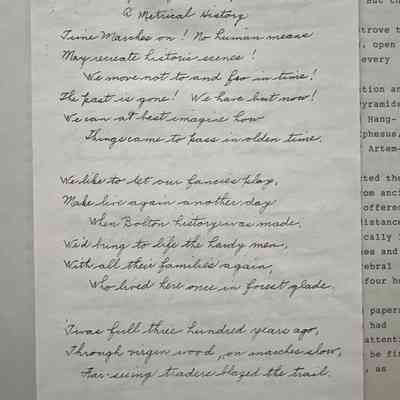 A Metrical History
Time Marches on! No human means
May recreate historic scenes!
We move not to and fro in time!
The past is gone! We have but now!
We can at best imagine how
Things came to pass in olden time.
We like to let our fancies play,
Make live again another day
When Bolton history was made.
We'd bring to life the hardy men,
With all their families again,
Who lived here once in forest glade.
'Twas full three hundred years ago,
Through virgin wood, on marches slow,
Far-seeing traders blazed the trail.
trove t
, open
every
tion an
yramids
Hang-
phesus,
Artem-
ted the
om anci
offered
istance
cally i
es and
ebral
four he
papers
had
attenti
be fin
, as